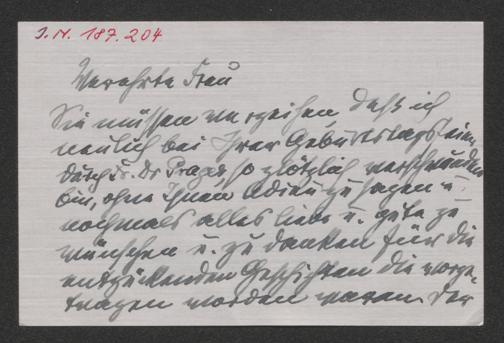 I.N. 187.204
Verehrte Frau
Sie müssen verzeihen daß ich
neulich bei Ihrer Geburtstagsfeier
durch Dr. Prager so plötzlich verschwunden
bin, ohne Ihnen Adieu zu sagen u.
nochmals alles liebe u. gute zu
wünschen u. zu danken für die
entzückenden Geschichten die vorge-
tragen worden waren. Der